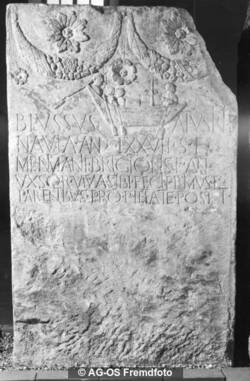 BLVSSVS ATVSIRI
NAVTA AN LXXV H S E
MENIMANE BRIGIONIS F AN
VXSOR VIVA SIBI FECIT PRIMVS F
PARENTIBVS PRO PIETATE POSIT
© AG-OS Fremdfoto